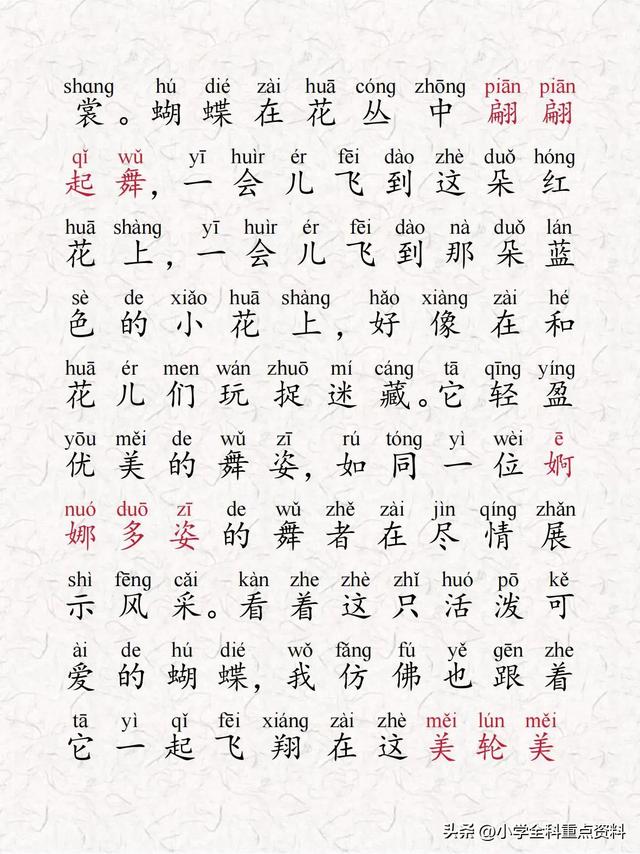 shang hú dié zài huā cóng zhōng piān piān
裳。蝴蝶在花丛中翩翩
qǐ wǔ yī huìr ér fēi dào zhè duǒ hóng
起舞，一会儿飞到这朵红
huā shàng yī huìr ér fēi dào nà duǒ lán
花上，一会儿飞到那朵蓝
sè de xiǎo huā shàng hǎo xiàng zài hé
色的小花上，好像在和
huā ér men wán zhuō mí cáng tā qīng yíng
花儿们玩捉迷藏。它轻盈
yōu měi de wǔ zī rú tóng yì wèi ē
优美的舞姿，如同一位婀
nuó duō zī de wǔ zhě zài jìn qíng zhǎn
娜多姿的舞者在尽情展
shì fēng cǎi kàn zhe zhè zhǐ huó pō kě
示风采。看着这只活泼可
ài de hú dié wǒ fǎng fú yě gēn zhe
爱的蝴蝶，我仿佛也跟着
tā yì qǐ fēi xiáng zài zhè měi lún měi
它一起飞翔在这美轮美
头条 @小学全科重点资料